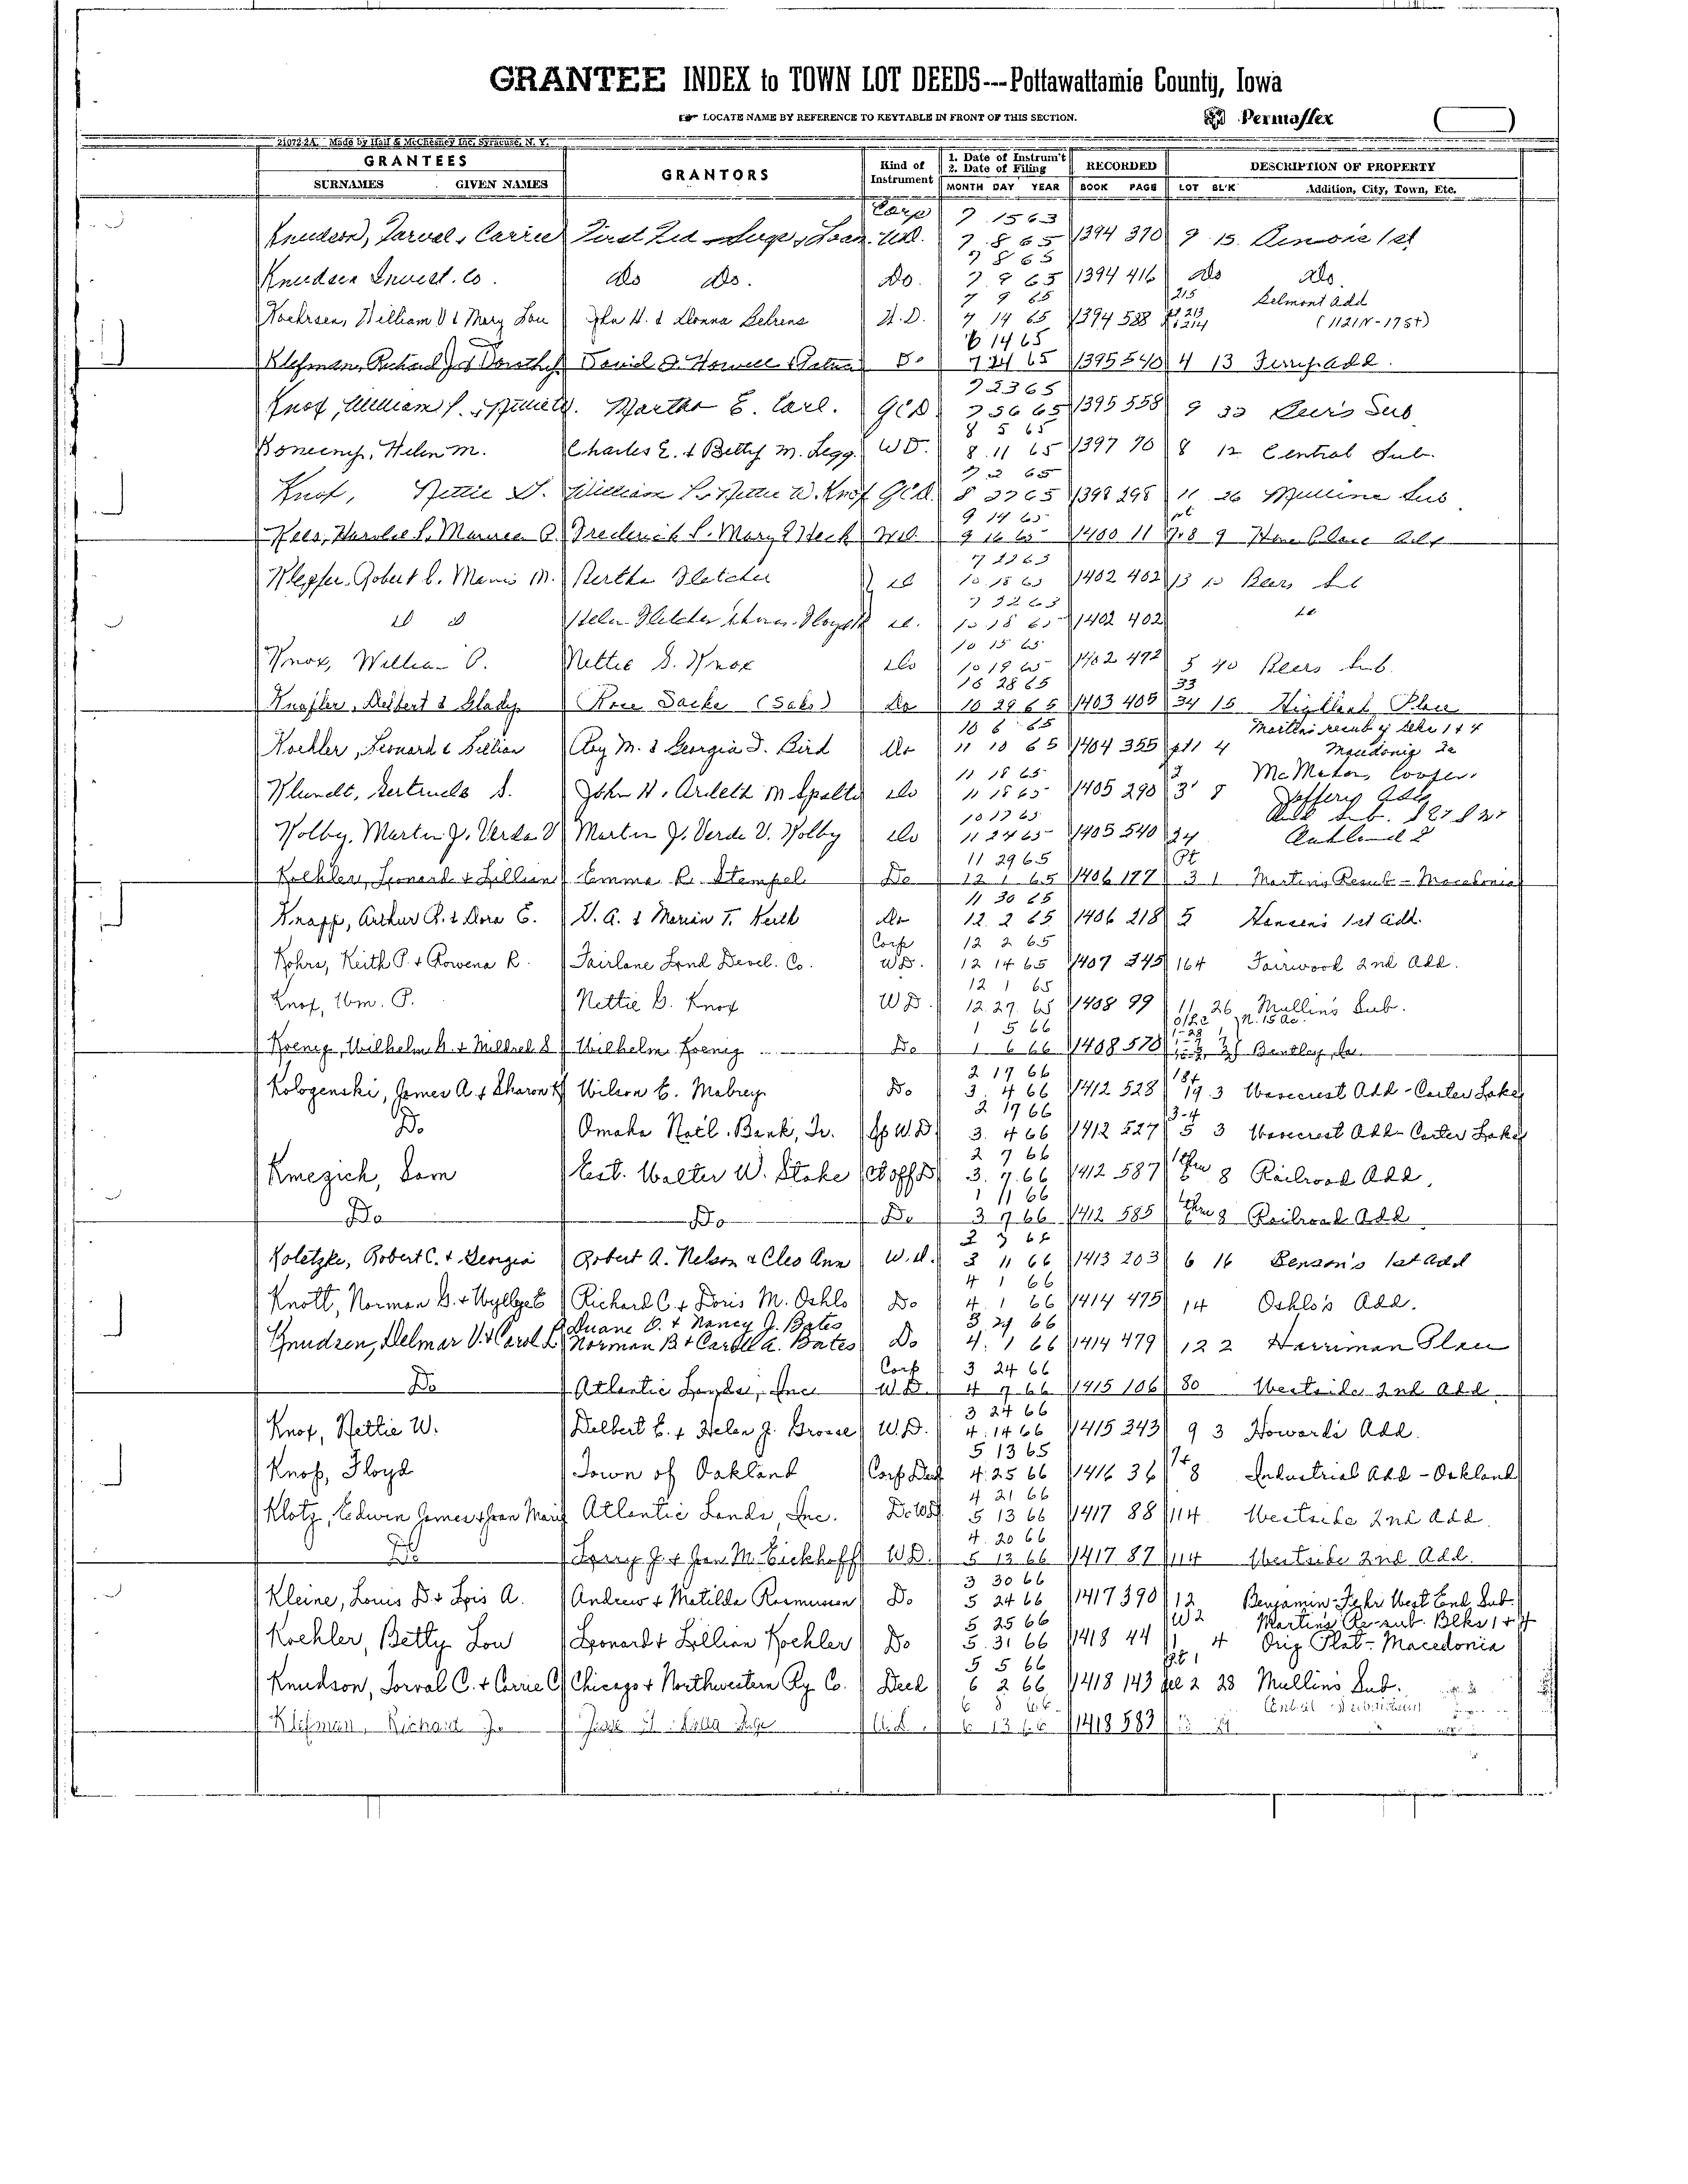 GRANTEE INDEX to TOWN LOT DEEDS---Pottawattamie County, Iowa
LOCATE NAME BY REFERENCE TO KEYTABLE IN FRONT OF THIS SECTION. Permaflex
21072-2A Made by Hall & McChesney Inc. Syracuse, N. Y.
GRANTEES GRANTORS Kind of Instrument 1. Date of Instrum't 2. Date of Filing RECORDED DESCRIPTION OF PROPERTY
SURNAMES GIVEN NAMES MONTH DAY YEAR BOOK PAGE LOT BL'K Addition, City, Town, Etc.
Corp 7 15 63
Knudson, Carrie First Fed 7 8 65 1394 370 9 15 1st
7 8 65
Knudsen Invest. Co. do do. Do. 7 9 65 1394 416 do do.
7 9 65 215 Belmont Add
William V & Mary Lou John H. & Donna Behrens W.D. 7 14 65 1394 588 213 214 (1121N-1754)
6 14 65
Klefman, Richard J & Dorothy David Howell Do 7 24 65 1395 540 4 13 Ferry Add.
7 23 65
Knox, William P. Martha E. Earl. QCD 1395 558 9 33 Beers Sub
8 5 65
Koneeny, Helen M. Charles E. & Betty M. Legg. WD. 8 11 65 1397 70 8 12 Central Sub.
Knox, Nettie William P. Nettie W. Knox QCD 8 27 65 1398 298 11 26 Mullins Sub
9 14 65 pt
Kees, Harold Frederick Mary Heck WD. 9 16 65 1400 11 7&8 9 Place Add
Klepfer, Robert C. M. Bertha Fletcher 10 18 65 1402 402 13 10 Beers
Helen Fletcher 10 18 65 1402 402
10 15 65
Knox, William P. Nettie D. Knox do 10 19 65 1402 472 5 40 Beers Sub.
10 28 65 33
Delbert & Gladys Rose Sacke (Saks) Do 10 29 65 1403 405 34 15 Highland Place
10 6 65 Martins resub of blks 1 & 4
Koehler, Leonard & Lillian Roy M. & Georgia I. Bird Do 11 10 65 1404 355 pt 1 4 Macedonia Ia
11 18 65 2 McMahon, Cooper,
Klundt, Gertrude S. John H. Ardeth M do 11 18 65 1405 290 3 8 Jeffery Add
10 17 65
Kolby, Martin J. Verda V Martin J. Verda V. Kolby do 11 24 65 1405 540 34 Oakland
11 29 65 Pt
Koehler, Leonard & Lillian Emma R. Stempel Do 12 1 65 1406 177 3 1 Martins Resub - Macedonia
11 30 65
Knapp, Arthur R. & Dora E. V. A. & Marian T. Keith Do 12 2 65 1406 218 5 Hansen's 1st Add.
Corp 12 2 65
Kohrs, Keith P. & Rowena R. Fairlane Land Devel. Co. WD. 12 14 65 1407 345 164 Fairwood 2nd Add.
12 1 65
Knox, Wm. P. Nettie D. Knox WD. 12 27 65 1408 99 11 26 Mullin's Sub.
1 5 66 N. 15 Ac.
Koenig, Wilhelm H. & Mildred S Wilhelm Koenig Do 1 6 66 1408 570 Bentley, Ia.
2 19 66 18+
Kologenski, James A. & Sharon K Wilson E. Mabrey Do 3 4 66 1412 528 19 3 Wavecrest Add - Carter Lake
2 19 66 3-4
Do Omaha Nat'l. Bank, Tr. Sp W.D. 3 4 66 1412 527 5 3 Wavecrest Add - Carter Lake
2 7 66 1
Kmezich, Sam Est. Walter W. Stake Ct Off D 3 7 66 1412 587 thru 8 Railroad Add.
1 11 66 1
Do Do Do 3 7 66 1412 585 thru 8 Railroad Add
2 3 66
Koletzke, Robert C. & Georgia Robert A. Nelson & Cleo Ann W.D. 3 11 66 1413 203 6 16 Benson's 1st Add
4 1 66
Knott, Norman G. & Richard C. & Doris M. Oehlo Do 4 1 66 1414 475 14 Oehlo's Add.
Duane O. & Nancy J. Bates 3 24 66
Knudsen, Delmar V. & Carol L Norman B & Carol A. Bates Do 4 1 66 1414 479 12 2 Harriman Place
Corp 3 24 66
Do Atlantic Lands, Inc WD 4 7 66 1415 106 80 Westside 2nd Add
3 24 66
Knox, Nettie W. Delbert E. & Helen J. Brosse W.D. 4 14 66 1415 243 9 3 Howard's Add.
5 13 65 7+
Knop, Floyd Town of Oakland Corp Deed 4 25 66 1416 36 8 Industrial Add - Oakland
4 21 66
Klotz, Edwin James & Jean Marie Atlantic Lands, Inc. Do WD 5 13 66 1417 88 114 Westside 2nd Add.
4 20 66
Do Larry J. & Jean M. Eickhoff WD. 5 13 66 1417 87 114 Westside 2nd Add.
3 30 66
Kleine, Louis D. & Lois A. Andrew & Matilda Rasmussen Do 5 24 66 1417 390 12 Benjamin Fehr West End Sub.
5 25 66 W2 Martin's Re-sub. Blks 1 & 4
Koehler, Betty Lou Leonard & Lillian Koehler Do 5 31 66 1418 44 1 4 Orig Plat - Macedonia
5 5 66 Pt 1
Knudson, Torval C. & Carrie C Chicago & Northwestern Ry Co. Deed 6 2 66 1418 143 2 28 Mullin's Sub.
Central Subdivision
Klefman, Richard J. 6 13 66 1418 583